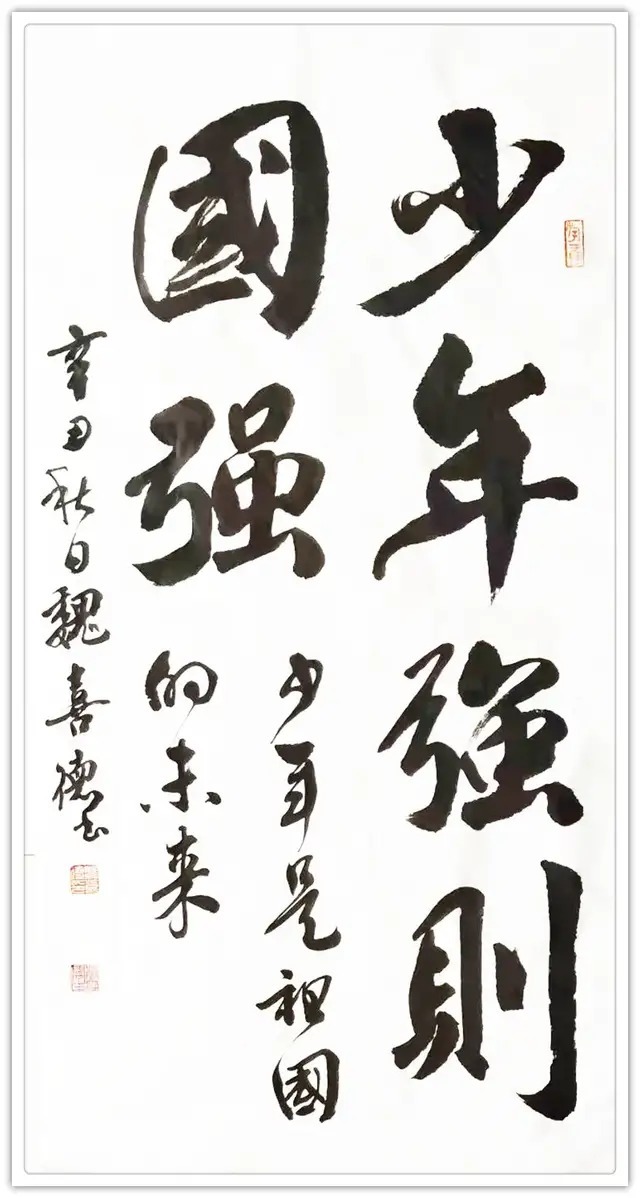 少年強則
國强
少年是祖國
的未来
辛丑秋日魏喜德书